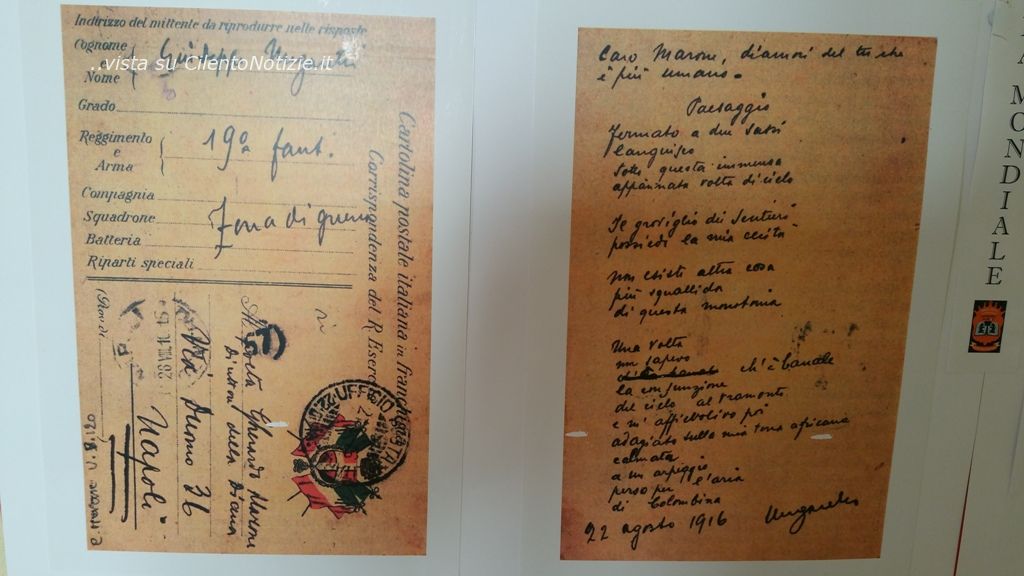 Indirizzo del mittente da riprodurre nelle risposte
Cognome
Giuseppe Ungaretti
..vista su CilentoNotizie.it
Nome
Grado
Reggimento
e
Arma
19º fant.
Compagnia
Squadrone
Zona di guerra
Batteria
Riparti speciali
Cartolina postale italiana in franchigia
Corrispondenza del R. Eserc
Al poeta Gherardo Marone
Direttore della Diana
Via Duomo 36
Napoli
(Prov. di
UFFICIO
Caro Marone, diamori del tu che
è più umano.
Paesaggio
Fermato a due sassi
languisco
sotto questa immensa
appannata volta di cielo
Il groviglio dei sentieri
possiede la mia cecità
non esiste altra cosa
più squallida
di questa monotonia
Una volta
non sapevo
ch'è banale
la congiunzione
del cielo al tramonto
e m'affievolivo poi
adagiato sulla mia terra africana
calmata
a un arpeggio
perso per l'aria
di Colombina
22 agosto 1916 Ungaretti
MONDIALE